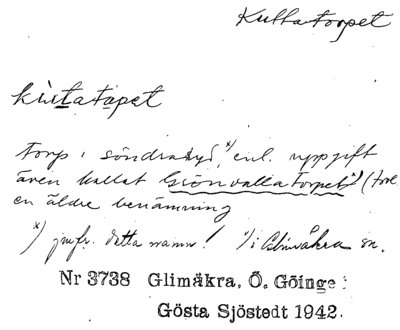 Kullatorpet
kùlatápet
torp i söndraby x), enl. uppgift
även kallat Grönvallatorpet x) (tro l.
en äldre benämning
x) jmfr. detta namn! i Glimåkra sn.
Nr 3738 Glimåkra, Ö. Göinge
Gösta Sjöstedt 1942.